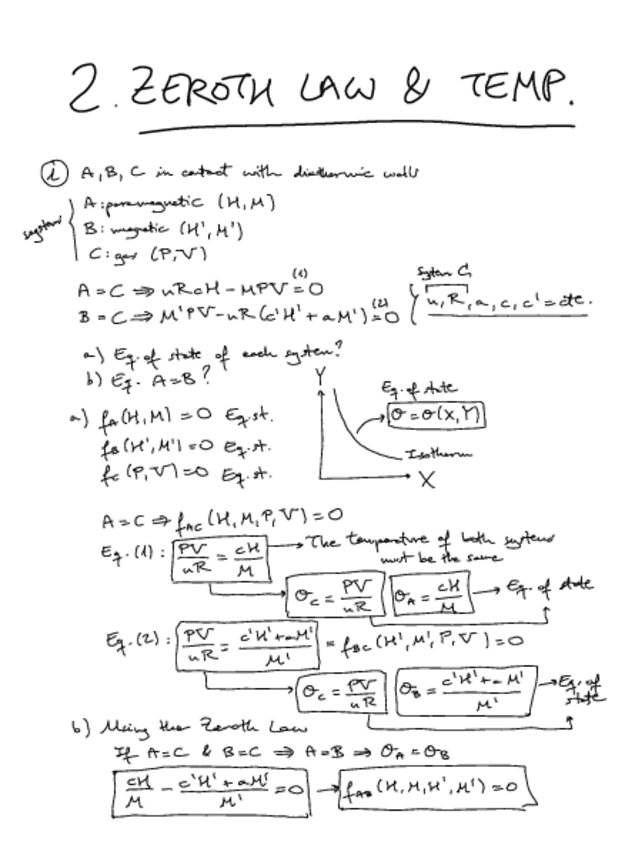 2. ZEROTH LAW & TEMP.
i A, B, C in contact with diathermic walls
systems
A: paramagnetic (H, M)
B: magnetic (H', M')
C: gas (P, V)
A = C ⇒ nRcH - MPV = 0 (1)
B = C ⇒ M'PV - nR(c'H' + aM') = 0 (2)
System C
n, R, a, c, c' = cte.
a) Eq. of state of each system?
b) Eq. A=B?
a) fA(H, M) = 0 Eq. st.
fB(H', M') = 0 Eq. st.
fC(P, V) = 0 Eq. st.
Y
Eq. of state
θ = θ(X, Y)
Isotherm
X
A = C ⇒ fAC(H, M, P, V) = 0
Eq. (1): PV/nR = cH/M → The temperature of both systems
must be the same
θC = PV/nR θA = cH/M → Eq. of state
Eq. (2): PV/nR = c'H' + aM'/M' = fBC(H', M', P, V) = 0
θC = PV/nR θB = c'H' + a M'/M' → Eq. of state
b) Using the Zeroth Law
If A=C & B=C ⇒ A=B ⇒ θA = θB
cH/M - c'H' + aM'/M' = 0 → fAB(H, M, H', M') = 0